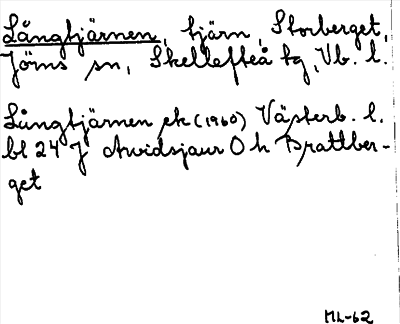 Långtjärnen, tjärn, Storberget,
Jörns sn, Skellefteå tg, Vb. l.
Långtjärnen ek (1960) Västerb. l.
bl 24 J Arvidsjaur O h Brattber-
get
ML-62